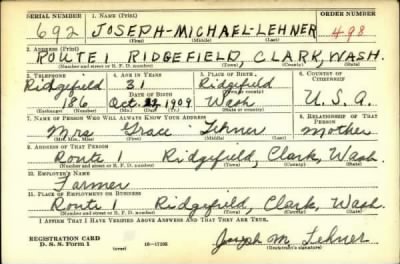 SERIAL NUMBER 1. NAME (Print) ORDER NUMBER
692 JOSEPH-MICHAEL-LEHNER 498
(First) (Middle) (Last)
2. ADDRESS (Print)
ROUTE 1 RIDGEFIELD, CLARK, WASH.
(Number and street or R. F. D. number) (Town) (County) (State)
3. TELEPHONE 4. AGE IN YEARS 5. PLACE OF BIRTH 6. COUNTRY OF CITIZENSHIP
Ridgefield 31 Ridgefield
DATE OF BIRTH (Town or county)
186 Oct. 1909 Wash U.S.A.
(Exchange) (Number) (Mo.) (Day) (Yr.) (State or country)
7. NAME OF PERSON WHO WILL ALWAYS KNOW YOUR ADDRESS 8. RELATIONSHIP OF THAT PERSON
Mrs Grace Lehner Mother
(Mr., Mrs., Miss) (First) (Middle) (Last)
9. ADDRESS OF THAT PERSON
Route 1 Ridgefield, Clark, Wash.
(Number and street or R. F. D. number) (Town) (County) (State)
10. EMPLOYER'S NAME
Farmer
11. PLACE OF EMPLOYMENT OR BUSINESS
Route 1 Ridgefield, Clark, Wash.
(Number and street or R. F. D. number) (Town) (County) (State)
I AFFIRM THAT I HAVE VERIFIED ABOVE ANSWERS AND THAT THEY ARE TRUE.
REGISTRATION CARD
D. S. S. Form 1 (over) 16-17105 Joseph M. Lehner
(Registrant's signature)